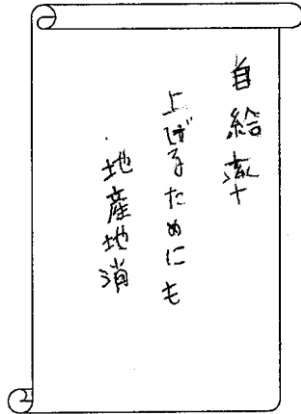 自給率
上げるためにも
地産地消